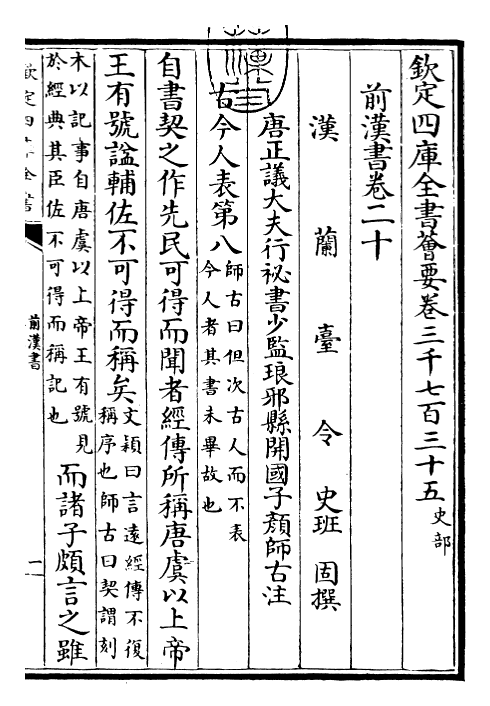 欽定四庫全書薈要卷三千七百三十五史部
前漢書卷二十
漢蘭臺令史班固撰
唐正議大夫行祕書少監琅邪縣開國子顏師古注
古今人表第八師古曰但次古人而不表今人者其書未畢故也
自書契之作先民可得而聞者經傳所稱唐虞以上帝
王有號諡輔佐不可得而稱矣文穎曰言遠經傳不復稱序也師古曰契謂刻
木以記事自唐虞以上帝王有號見於經典其臣佐不可得而稱記也而諸子頗言之雖
欽定四庫全書
前漢書
一